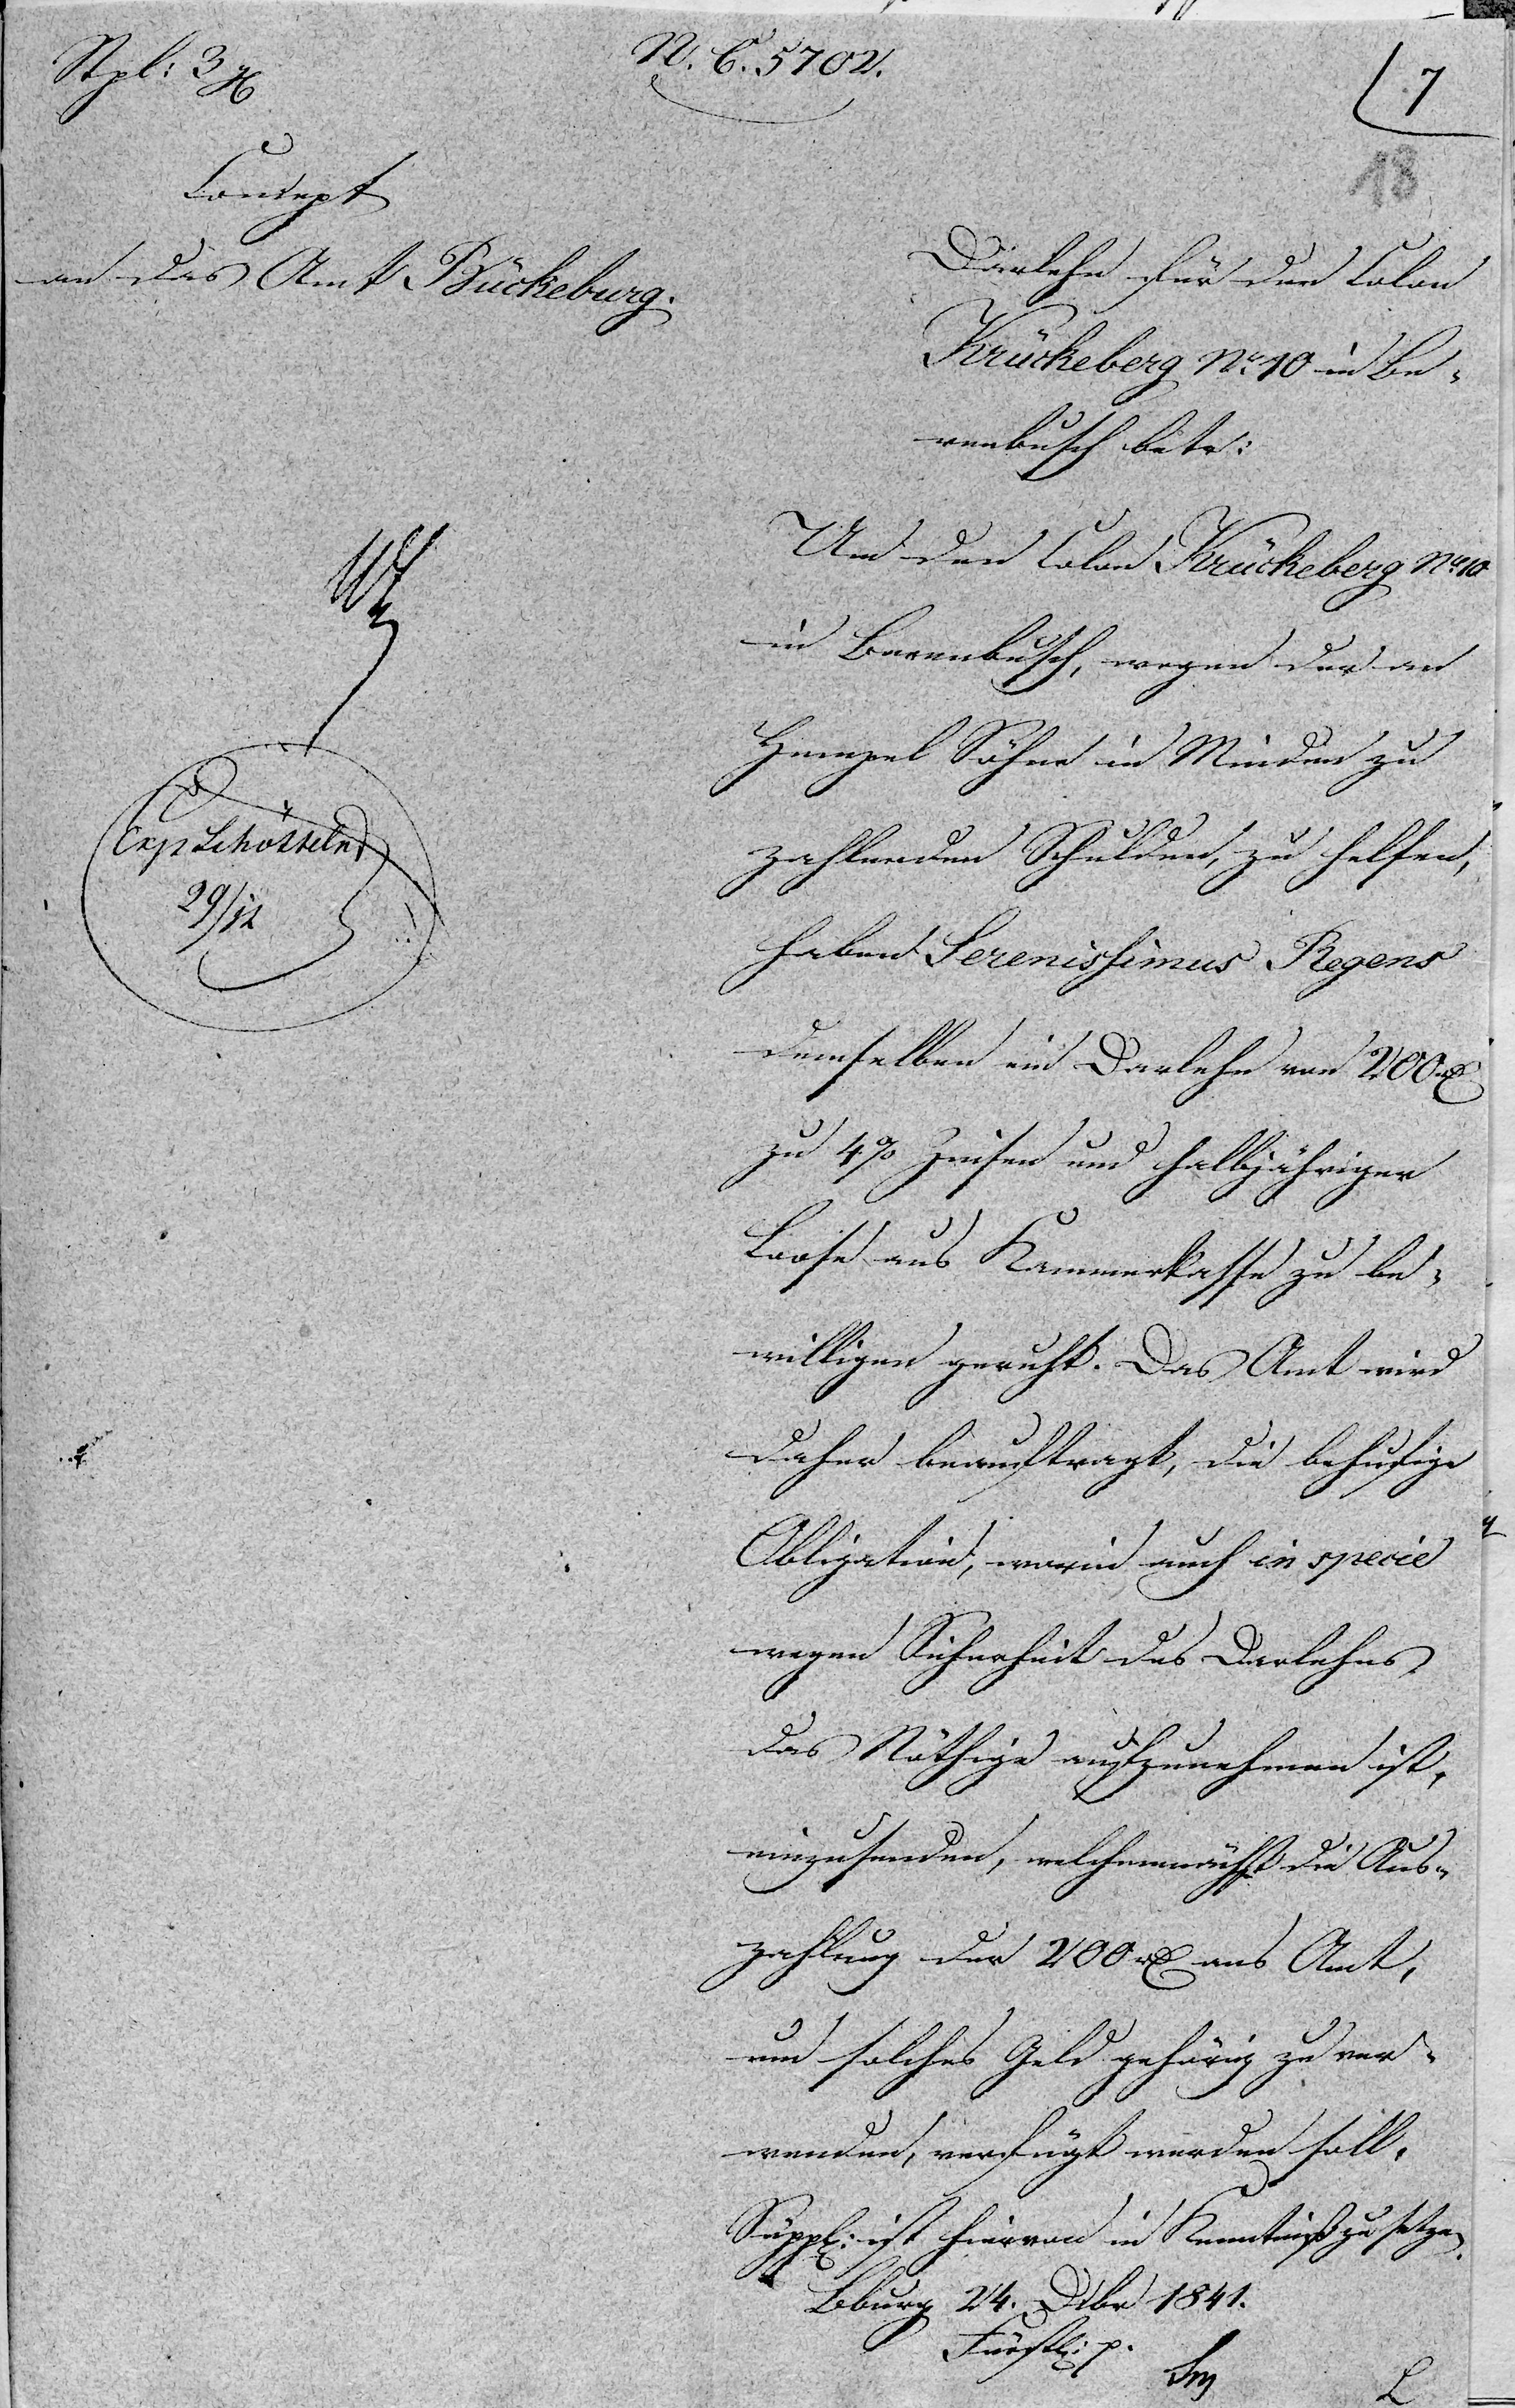 Stpl: 3
N. C. 5702.
7
18
Concept
an das Amt Bückeburg.
Darlehn für den Colon
Krückeberg No 10 in Be-
renbusch betr:
Um den Colon Krückeberg No 10
in Berenbusch, wegen der an
Hempel Söhne in Minden zu
zahlenden Schulden, zu helfen,
haben Serenissimus Regens
demselben ein Darlehn von 200 rθ
zu 4% Zinsen und halbjähriger
Loose aus Kammerkasse zu be-
willigen geruht. Das Amt wird
daher beauftragt, die behufige
Obligation, worin auch in specie
wegen Sicherheit des Darlehns
das Nöthige aufzunehmen ist,
einzusenden, welchemnächst die Aus-
zahlung der 200 rθ ans Amt,
um solches Geld gehörig zu ver-
wenden, verfügt werden soll.
Suppl: ist hiervon in Kenntniß zu setzen.
Bburg 24. Dcbr 1841.
Fürstl: p.
Exp Schötteln
29/12